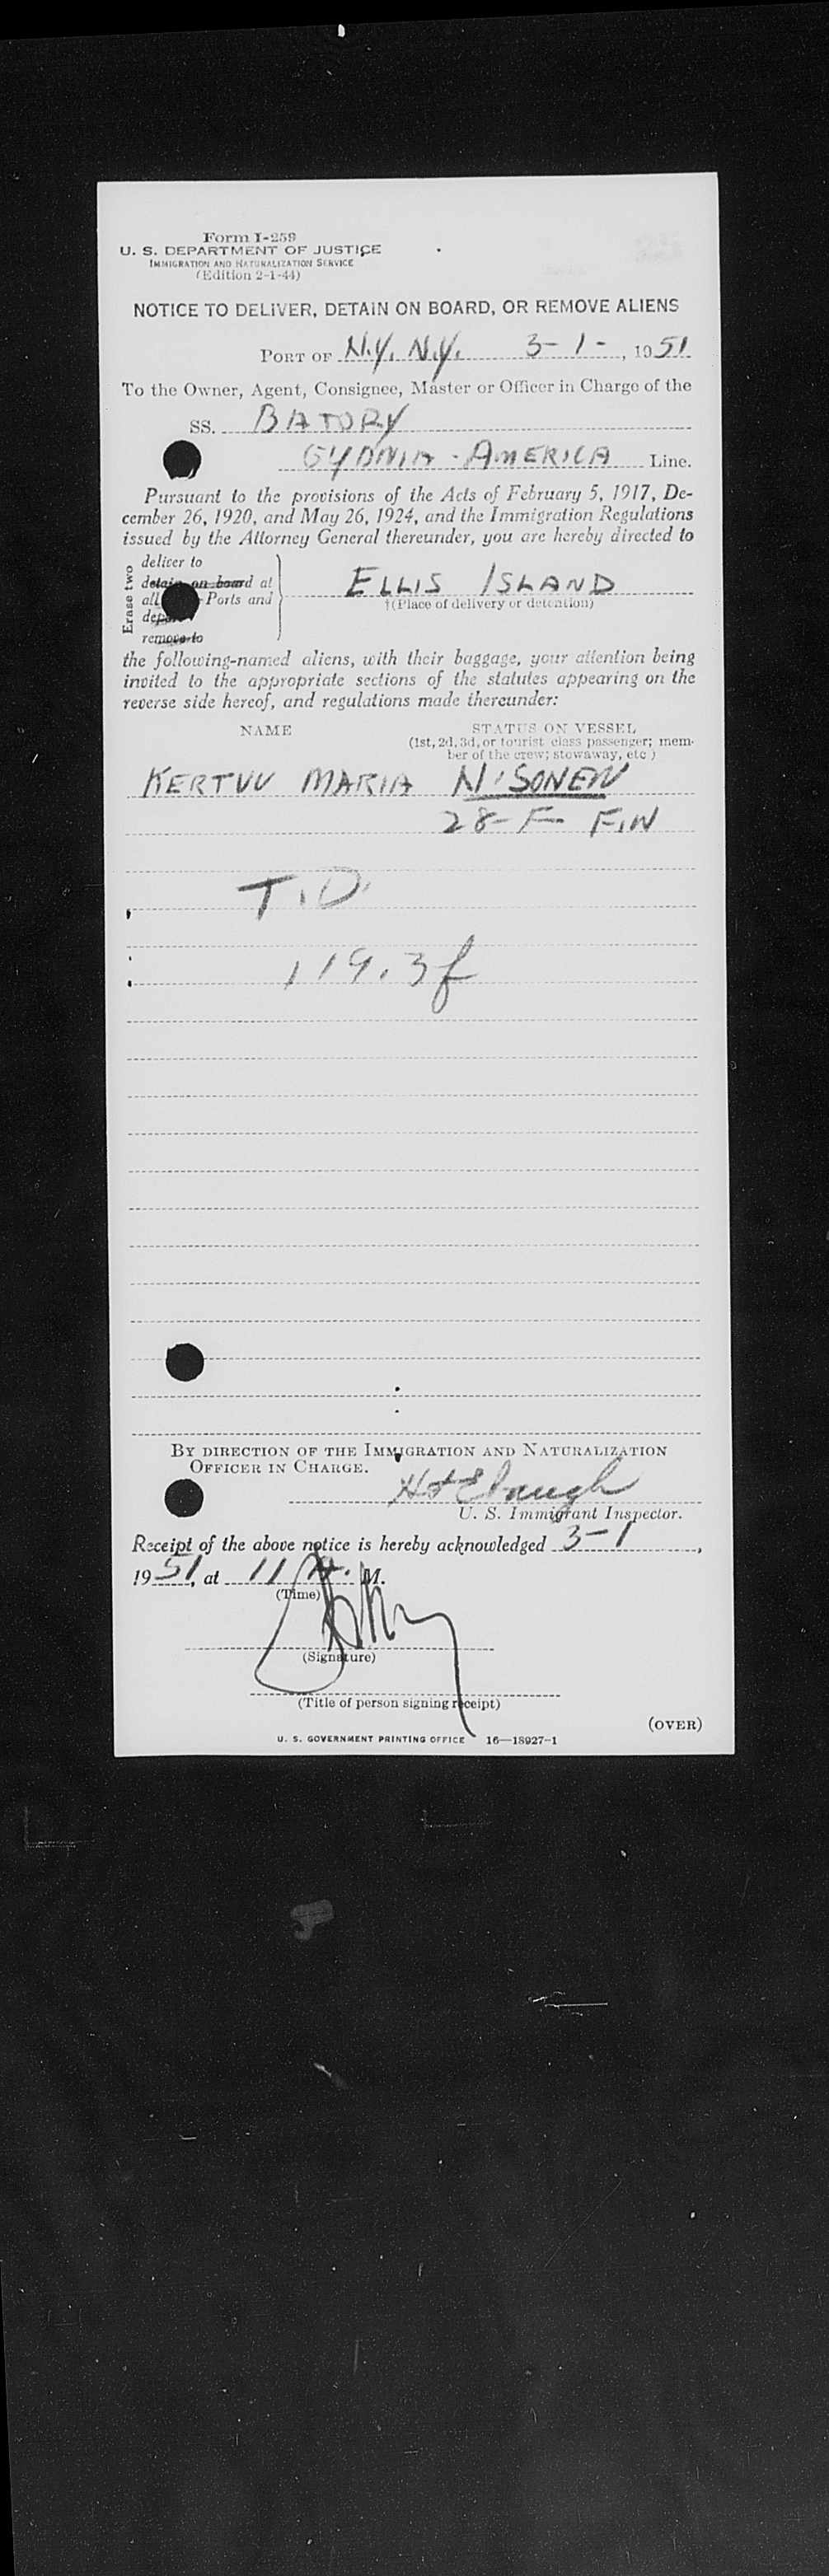 Form I-259
U. S. DEPARTMENT OF JUSTICE
IMMIGRATION AND NATURALIZATION SERVICE
(Edition 2-1-44)
NOTICE TO DELIVER, DETAIN ON BOARD, OR REMOVE ALIENS
PORT OF N.Y. N.Y. 3-1-, 1951
To the Owner, Agent, Consignee, Master or Officer in Charge of the
SS. BATORY
GYDNIA-AMERICA Line.
Pursuant to the provisions of the Acts of February 5, 1917, De-
cember 26, 1920, and May 26, 1924, and the Immigration Regulations
issued by the Attorney General thereunder, you are hereby directed to
Erase two
deliver to
detain on board at
all Ports and
remove to
ELLIS ISLAND
†(Place of delivery or detention)
the following-named aliens, with their baggage, your attention being
invited to the appropriate sections of the statutes appearing on the
reverse side hereof, and regulations made thereunder:
NAME STATUS ON VESSEL
(1st, 2d, 3d, or tourist class passenger; mem-
ber of the crew; stowaway, etc.)
KERTUU MARIA NISONEN
28-F- FIN
T.D.
119.3f
BY DIRECTION OF THE IMMIGRATION AND NATURALIZATION
OFFICER IN CHARGE.
U. S. Immigrant Inspector.
Receipt of the above notice is hereby acknowledged 3-1,
1951, at 11 A. M.
(Time)
(Signature)
(Title of person signing receipt)
(OVER)
U. S. GOVERNMENT PRINTING OFFICE 16—18927-1